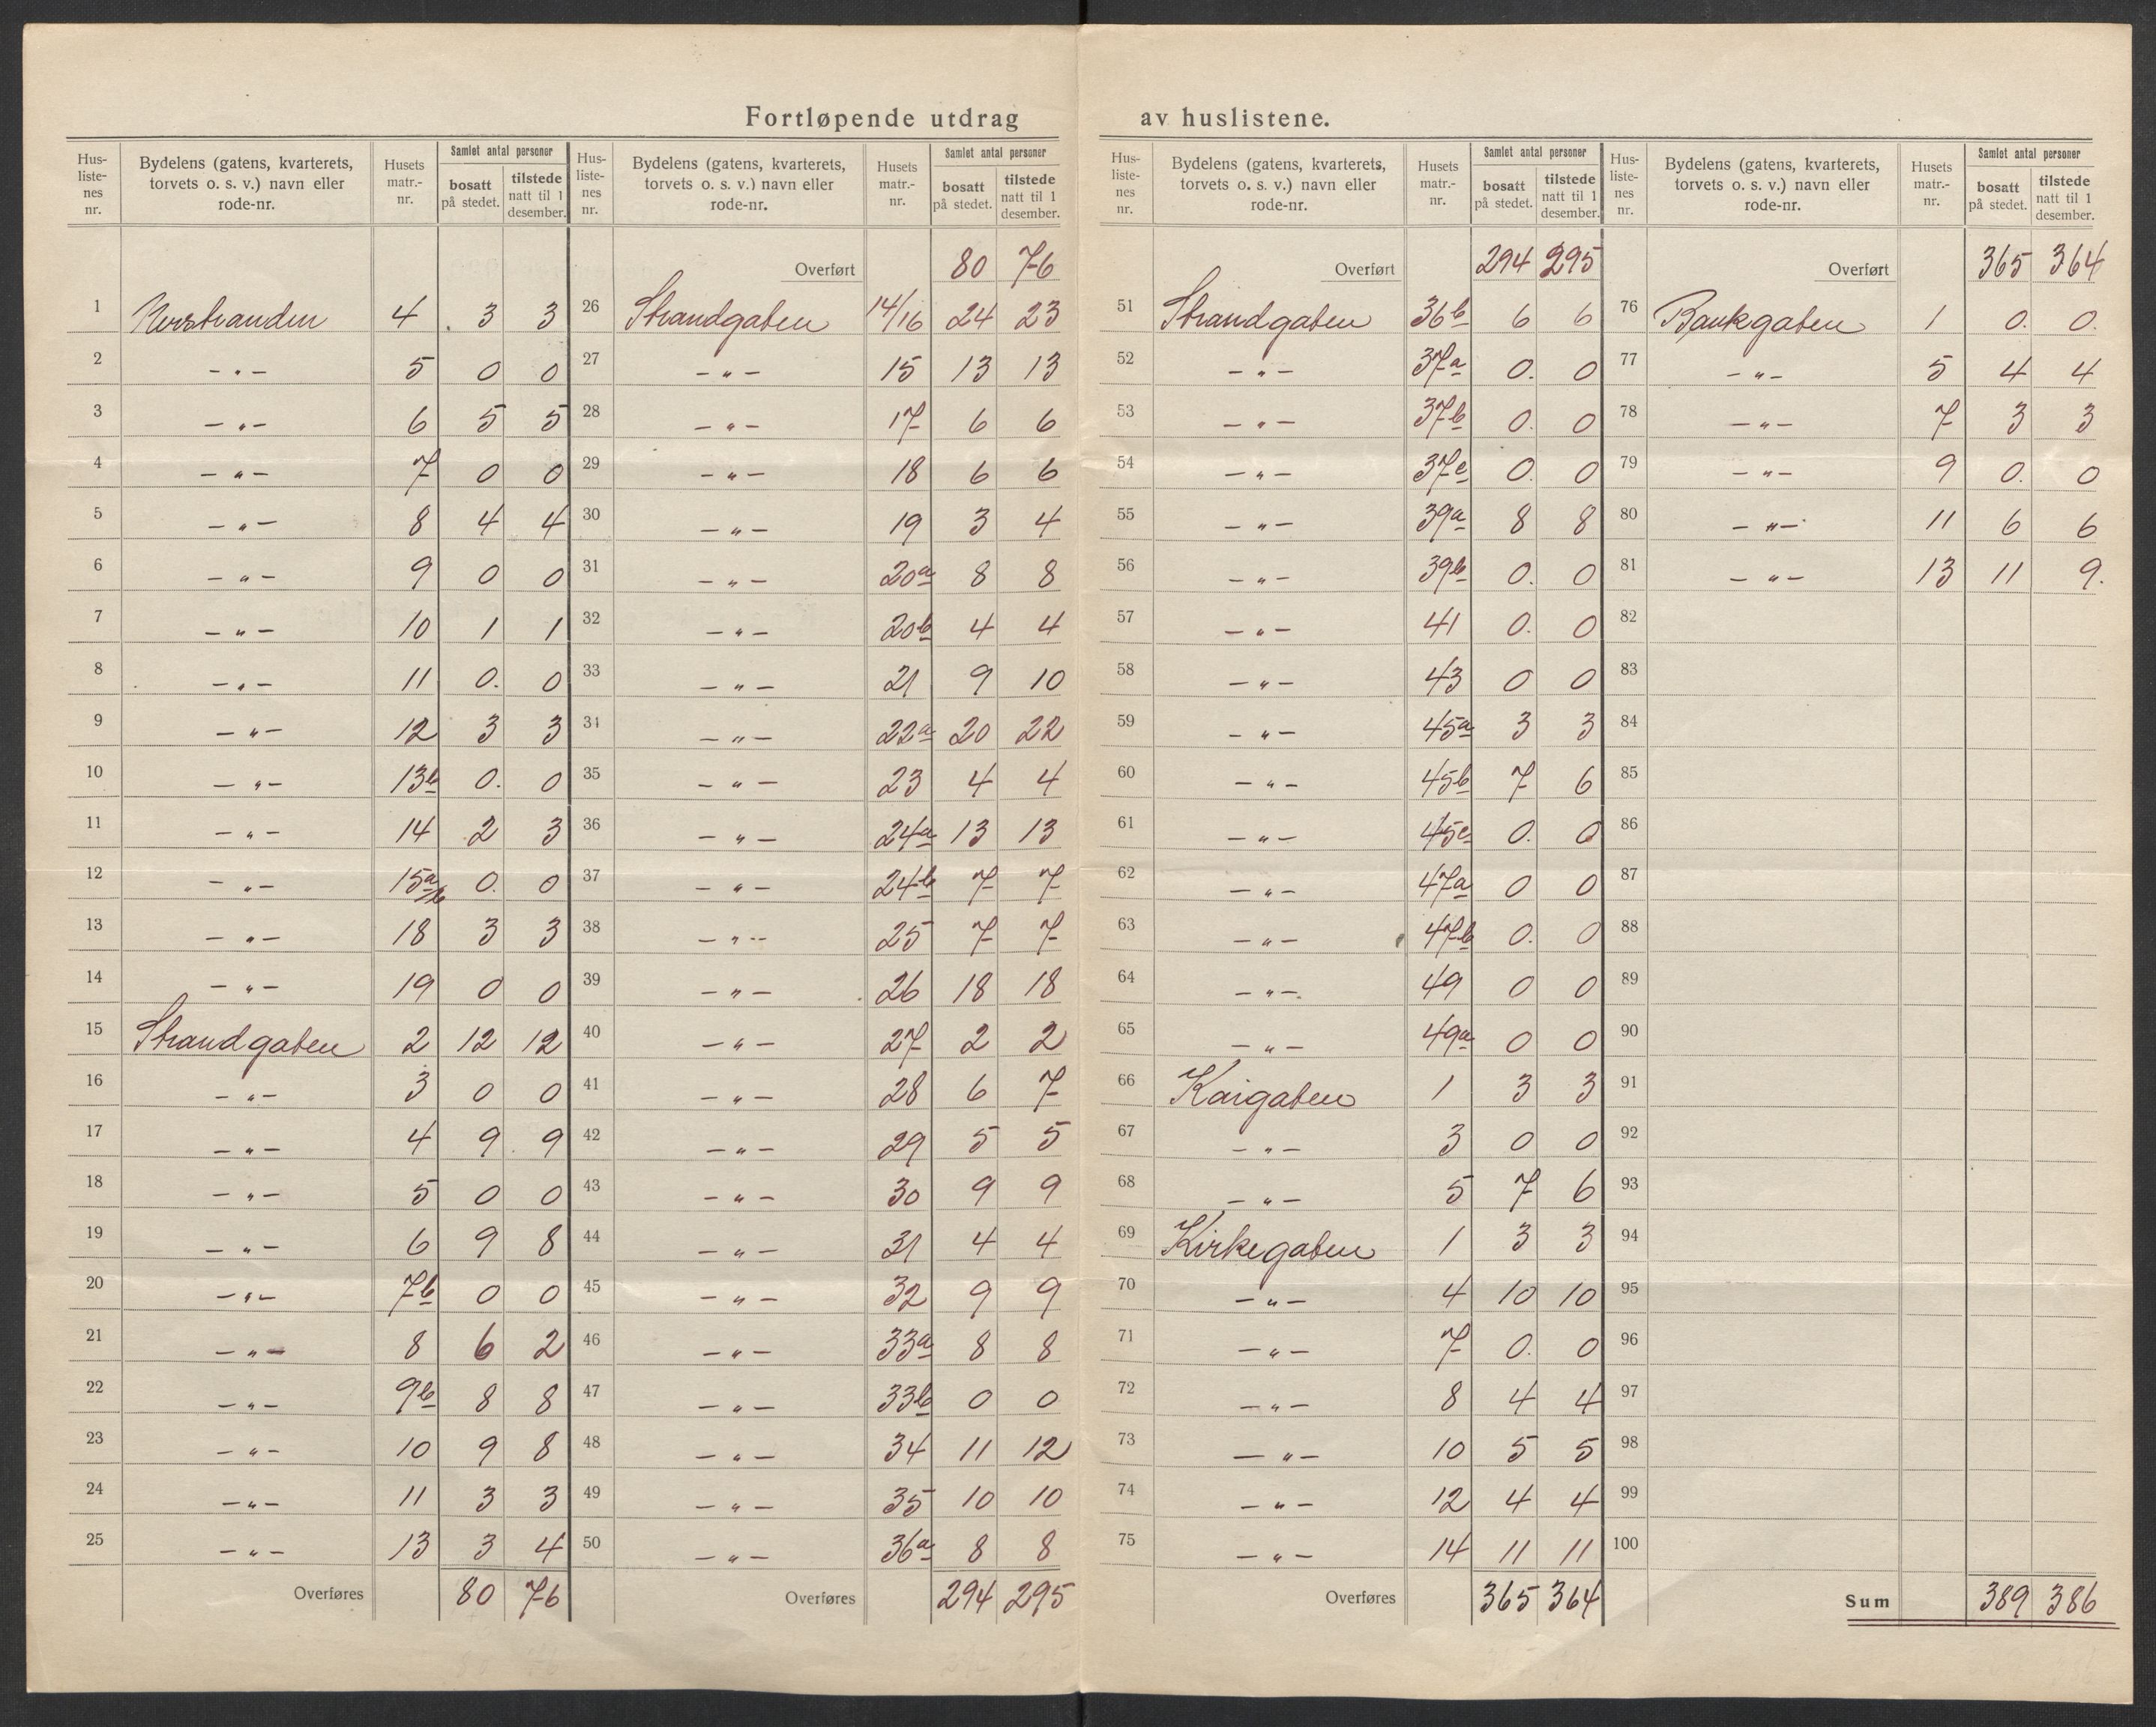 Fortløpende utdrag av huslistene.
Hus-listenes nr. | Bydelens (gatens, kvarterets, torvets o. s. v.) navn eller rode-nr. | Husets matr.-nr. | Samlet antal personer | bosatt på stedet. | tilstede natt til 1 desember.
1 4 3 3
2 -"- 5 0 0
3 -"- 6 5 5
4 -"- 7 0 0
5 -"- 8 4 4
6 -"- 9 0 0
7 -"- 10 1 1
8 -"- 11 0. 0
9 -"- 12 3 3
10 -"- 13b 0. 0
11 -"- 14 2 3
12 -"- 15a/b 0. 0
13 -"- 18 3 3
14 -"- 19 0 0
15 Strandgaten 2 12 12
16 -"- 3 0 0
17 -"- 4 9 9
18 -"- 5 0 0
19 -"- 6 9 8
20 -"- 7b 0 0
21 -"- 8 6 2
22 -"- 9b 8 8
23 -"- 10 9 8
24 -"- 11 3 3
25 -"- 13 3 4
Overføres 80 76
Hus-listenes nr. | Bydelens (gatens, kvarterets, torvets o. s. v.) navn eller rode-nr. | Husets matr.-nr. | Samlet antal personer | bosatt på stedet. | tilstede natt til 1 desember.
Overført 80 76
26 Strandgaten 14/16 24 23
27 -"- 15 13 13
28 -"- 17 6 6
29 -"- 18 6 6
30 -"- 19 3 4
31 -"- 20a 8 8
32 -"- 20b 4 4
33 -"- 21 9 10
34 -"- 22a 20 22
35 -"- 23 4 4
36 -"- 24a 13 13
37 -"- 24b 7 7
38 -"- 25 7 7
39 -"- 26 18 18
40 -"- 27 2 2
41 -"- 28 6 7
42 -"- 29 5 5
43 -"- 30 9 9
44 -"- 31 4 4
45 -"- 32 9 9
46 -"- 33a 8 8
47 -"- 33b 0 0
48 -"- 34 11 12
49 -"- 35 10 10
50 -"- 36a 8 8
Overføres 294 295
Hus-listenes nr. | Bydelens (gatens, kvarterets, torvets o. s. v.) navn eller rode-nr. | Husets matr.-nr. | Samlet antal personer | bosatt på stedet. | tilstede natt til 1 desember.
Overført 294 295
51 Strandgaten 36b 6 6
52 -"- 37a 0. 0
53 -"- 37b 0. 0
54 -"- 37c 0. 0
55 -"- 39a 8 8
56 -"- 39b 0. 0
57 -"- 41 0. 0
58 -"- 43 0 0
59 -"- 45a 3 3
60 -"- 45b 7 6
61 -"- 45c 0. 0
62 -"- 47a 0 0
63 -"- 47b 0. 0
64 -"- 49 0 0
65 -"- 49a 0 0
66 Kaigaten 1 3 3
67 -"- 3 0 0
68 -"- 5 7 6
69 Kirkegaten 1 3 3
70 -"- 4 10 10
71 -"- 7 0. 0
72 -"- 8 4 4
73 -"- 10 5 5
74 -"- 12 4 4
75 -"- 14 11 11
Overføres 365 364
Hus-listenes nr. | Bydelens (gatens, kvarterets, torvets o. s. v.) navn eller rode-nr. | Husets matr.-nr. | Samlet antal personer | bosatt på stedet. | tilstede natt til 1 desember.
Overført 365 364
76 Bankgaten 1 0. 0.
77 -"- 5 4 4
78 -"- 7 3 3
79 -"- 9 0. 0
80 -"- 11 6 6
81 -"- 13 11 9.
82
83
84
85
86
87
88
89
90
91
92
93
94
95
96
97
98
99
100
Sum 389 386